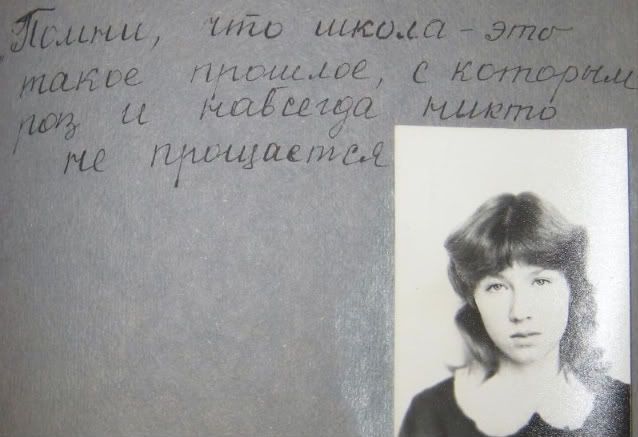 "Помни, что школа - это
такое прошлое, с которым
роз и навсегда никто
не прощается